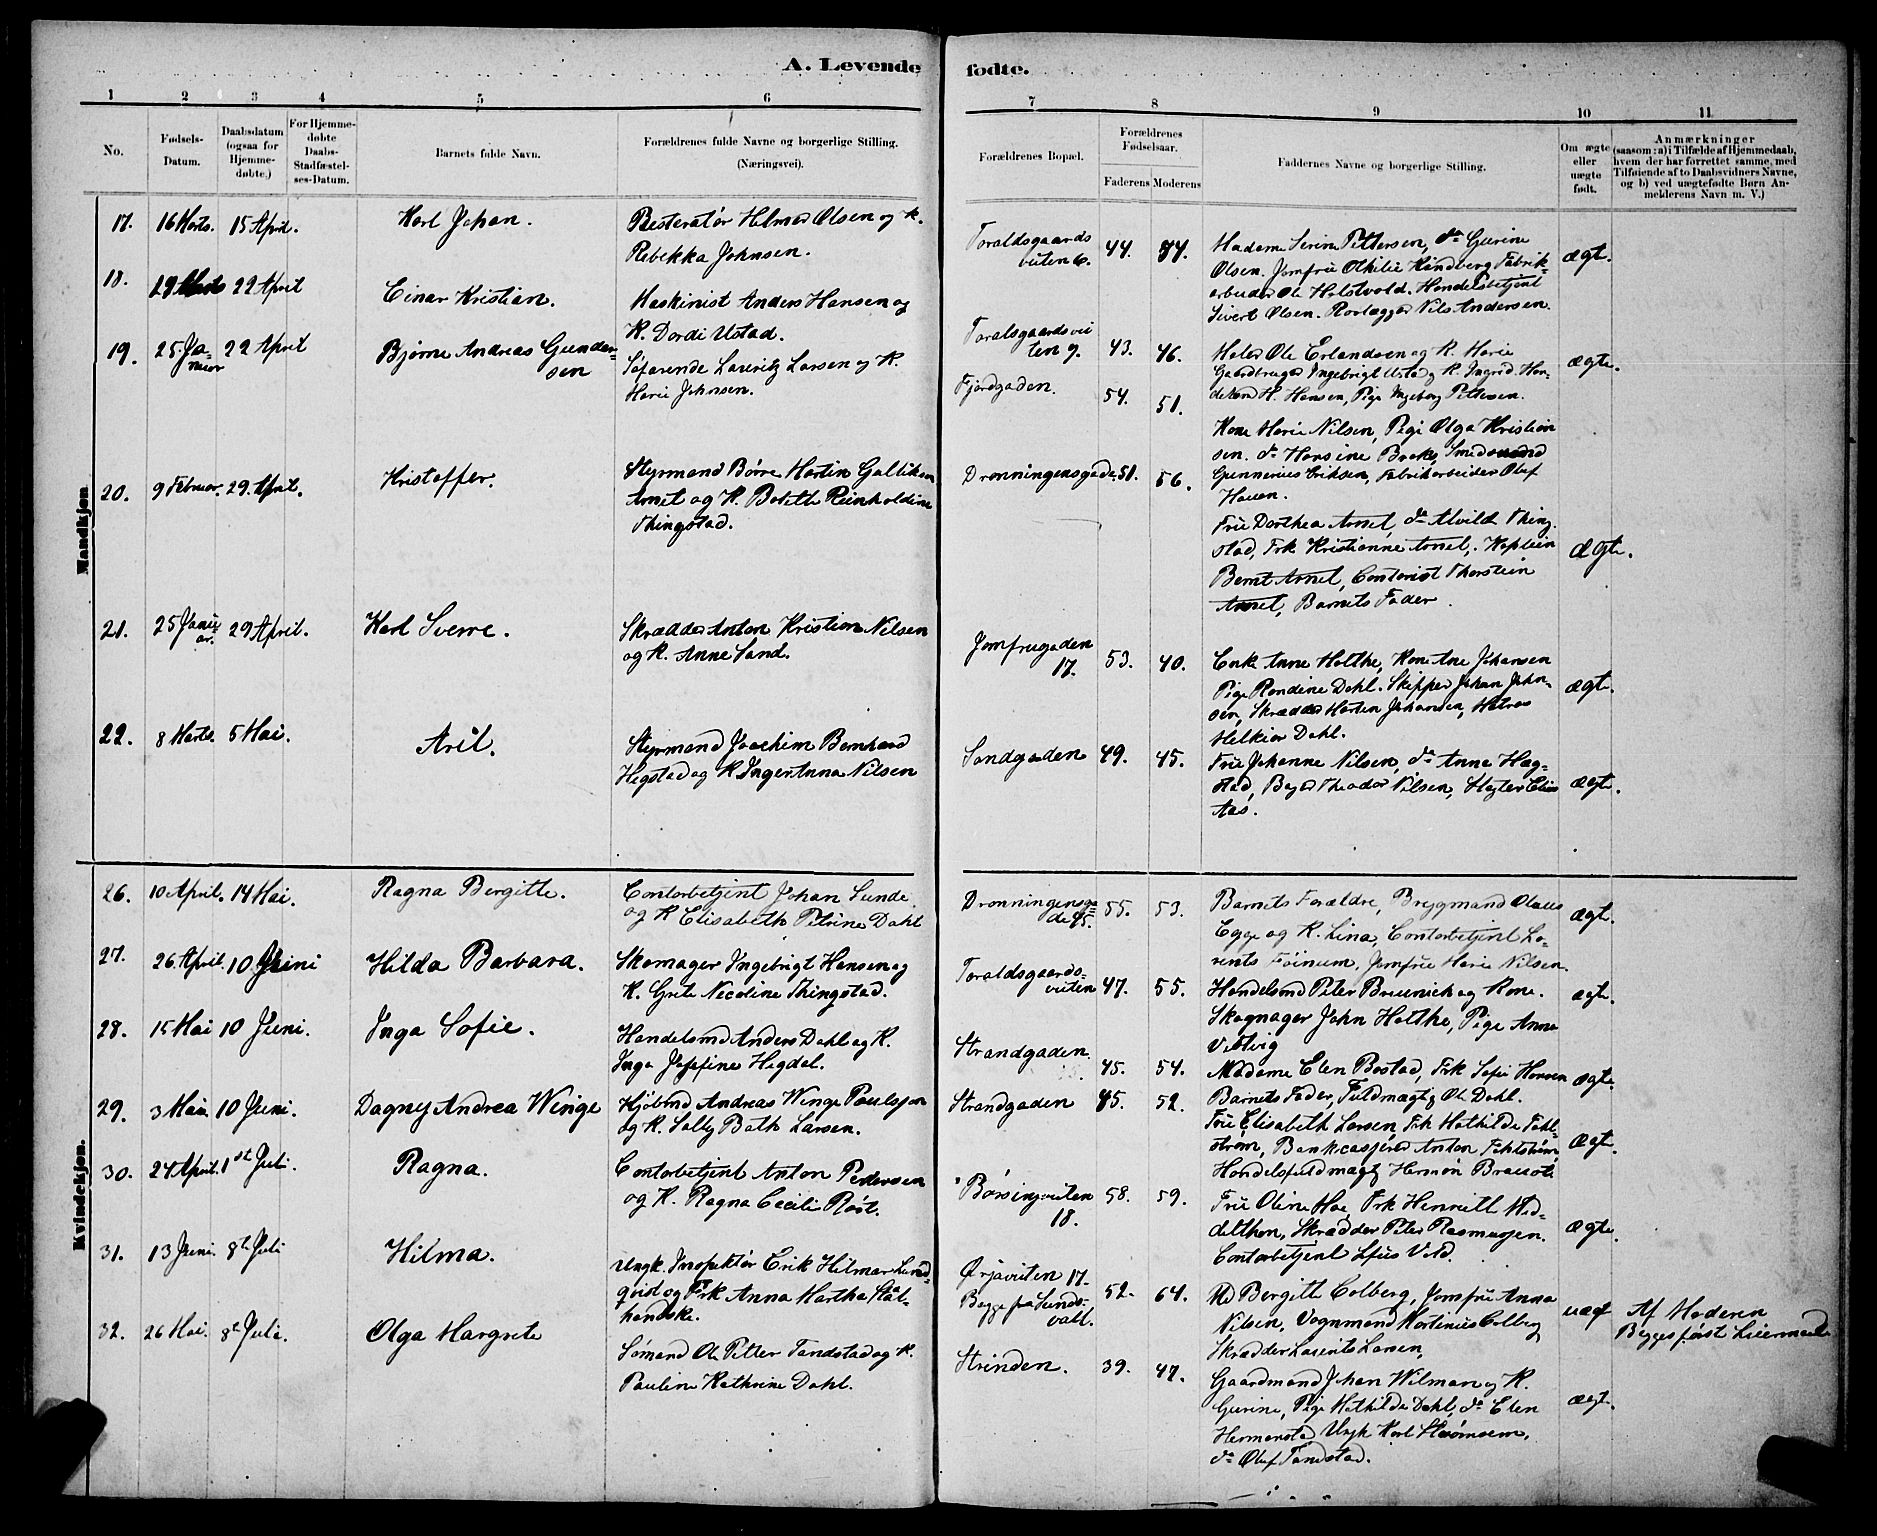 A. Levende
fødte.
1 2 3 4 5 6
7 8 9 10 11
No.
Fødsels-
Datum.
Daabsdatum
(ogsaa for
Hjemme-
døbte.)
For Hjemme-
døbte
Daabs-
Stadfæstel-
ses-Datum.
Barnets fulde Navn.
Forældrenes fulde Navne og borgerlige Stilling.
(Næringsvei).
Forældrenes Bopæl.
Forældrenes
Fødselsaar.
Faderens Moderens
Faddernes Navne og borgerlige Stilling.
Om ægte
eller
uægte
født.
Anmærkninger
(saasom: a) i Tilfælde af Hjemmedaab,
hvem der har forrettet samme, med
Tilføiende af to Daabsvidners Navne,
og b) ved uægtefødte Børn An-
melderens Navn m. V.)
Mandkjøn
17. 16 Marts. 15 April. Karl Johan.
Resteratør Hilmar Olsen og K.
Rebekka Johnsen.
Toraldsgaards
veiten 6. 44. 44.
Madame Serine Pettersen, do Gurine
Olsen. Jomfru Othilie Kindberg Fabrik-
arbeider Ole Holstvold. Handelsbetjent
Sivert Olsen. Rorlægger Nils Andersen.
ægt.
18. 29 Marts 22 April Einar Kristian.
Maskinist Anders Hansen og
K. Dordi Ustad.
Toralsgaardsvei
ten 7. 43. 46.
Maler Ole Erlandsen og K. Marie
Gaardbruger Ingebrigt Ustad og K. Ingrid Han-
delsmd H. Hansen, Pige Ingeborg Pettersen.
ægte.
19. 25. Ja-
nuar 22 April Bjørne Andreas Gunder-
sen
Søfarende Lauritz Larsen og K.
Marie Johnsen.
Fjordgaden. 54. 51.
Kone Marie Nilsen, Pige Olga Kristian
sen. do Hansine Brekk, Smedsvend
Gunnerius Eriksen, Fabrikarbeider Oluf
Hauen.
20. 9 Februar. 29. April. Kristoffer.
Styrmand Børre Martin Gulliksen
Arnet og K. Botette Reinholdine
Thingstad.
Dronningensgade 51. 56.
Fru Dorthea Arnet, do Alvilde Thing-
stad, Frk Kristianne Arnet, Kaptein
Bernt Arnet, Contorist Thorstein
Arnet, Barnets Fader.
ægte.
21. 25 Janu-
ar. 29 April. Karl Sverre.
Skrædder Anton Kristian Nilsen
og K. Anne Sand.
Jomfrugaden
17. 53. 40.
Enke Anne Holthe, Kone Ane Johansen
Pige Rondine Dahl. Skipper Johan John-
sen, Skrædder Morten Johansen, Matros
Melkior Dahl.
ægte.
22. 8 Marts. 6 Mai. Aril.
Styrmand Joachim Bernhard
Hegstad og K Inger Anna Nilsen
Sandgaden 49. 45.
Fru Johanne Nilsen, do Anna Heg-
stad, Bager Theodor Nilsen, Slagter Elias
Aas.
ægte.
Kvindekjøn.
26. 10 April. 14 Mai. Ragna Bergitte.
Contorbetjent Johan Sunde
og K Elisabeth Petrine Dahl
Dronningensga
de 45. 55. 53.
Barnets Forældre, Brygmand Olaus
Egge og K. Lina, Contorbetjent Lo-
rents Føinum, Jomfru Marie Nilsen.
ægt.
27. 26 April. 10 Juni Hilda Barbara.
Skomager Ingebrigt Hansen og
K. Grete Nicoline Thingstad.
Toraldsgaards-
veiten 47. 55.
Handelsmd Peter Breunich og Kone.
Skomager John Holthe, Pige Anna
Vitsvig
ægte.
28. 15 Mai 10 Juni. Inga Sofie.
Handelsmd Anders Dahl og K.
Inga Josefine Hegdal.
Strandgaden. 45. 54.
Madame Elen Bostad, Frk Sofie Hansen
Barnets Fader, Fuldmægt. Ole Dahl.
ægte.
29. 3 Mai 10 Juni. Dagny Andrea Winge
Kjøbmd Andreas Winge Paulssen
og K. Sally Bath Larsen.
Strandgaden 45. 52.
Fru Elisabeth Larsen, Frk Mathilde Fahl-
strøm, Bankcasjerer Anton Fahlstrøm
Handelsfuldmægt. Herman
ægt.
30. 24 April. 1st Juli. Ragna.
Contorbetjent Anton Pedersen
og K. Ragna Cecilie Røst.
Børsinjveiten
18. 58. 59.
Fru Oline Moe, Frk Henriette Mid-
delthon, Skrædder Peter Rasmussen.
Contorbetjent
ægte.
31. 13 Juni. 8de Juli Hilma.
Ungk. Inspektør Erik Hilmar Lund-
qvist og Frk Anna Martha Stål-
handske.
Ørjaveiten 17.
Begge fra Sunds-
vall. 52. 64.
Md Bergitte Colberg, Jomfru Anna
Nilsen, Vognmand Martinius Colberg
Skrædder Laurits Larsen,
uægt
Af Moderen
Begges først Leiermaal
32. 26 Mai. 8de Juli. Olga Margrete
Sømand Ole Petter Tandstad og K.
Pauline Kathrine Dahl.
Strinden. 39. 47.
Gaardmand Johan Wilman og K.
Gurine, Pige Mathilde Dahl, do Elen
Hermanstad Ungk Karl Strømsem,
do Oluf Tandstad.
ægte.